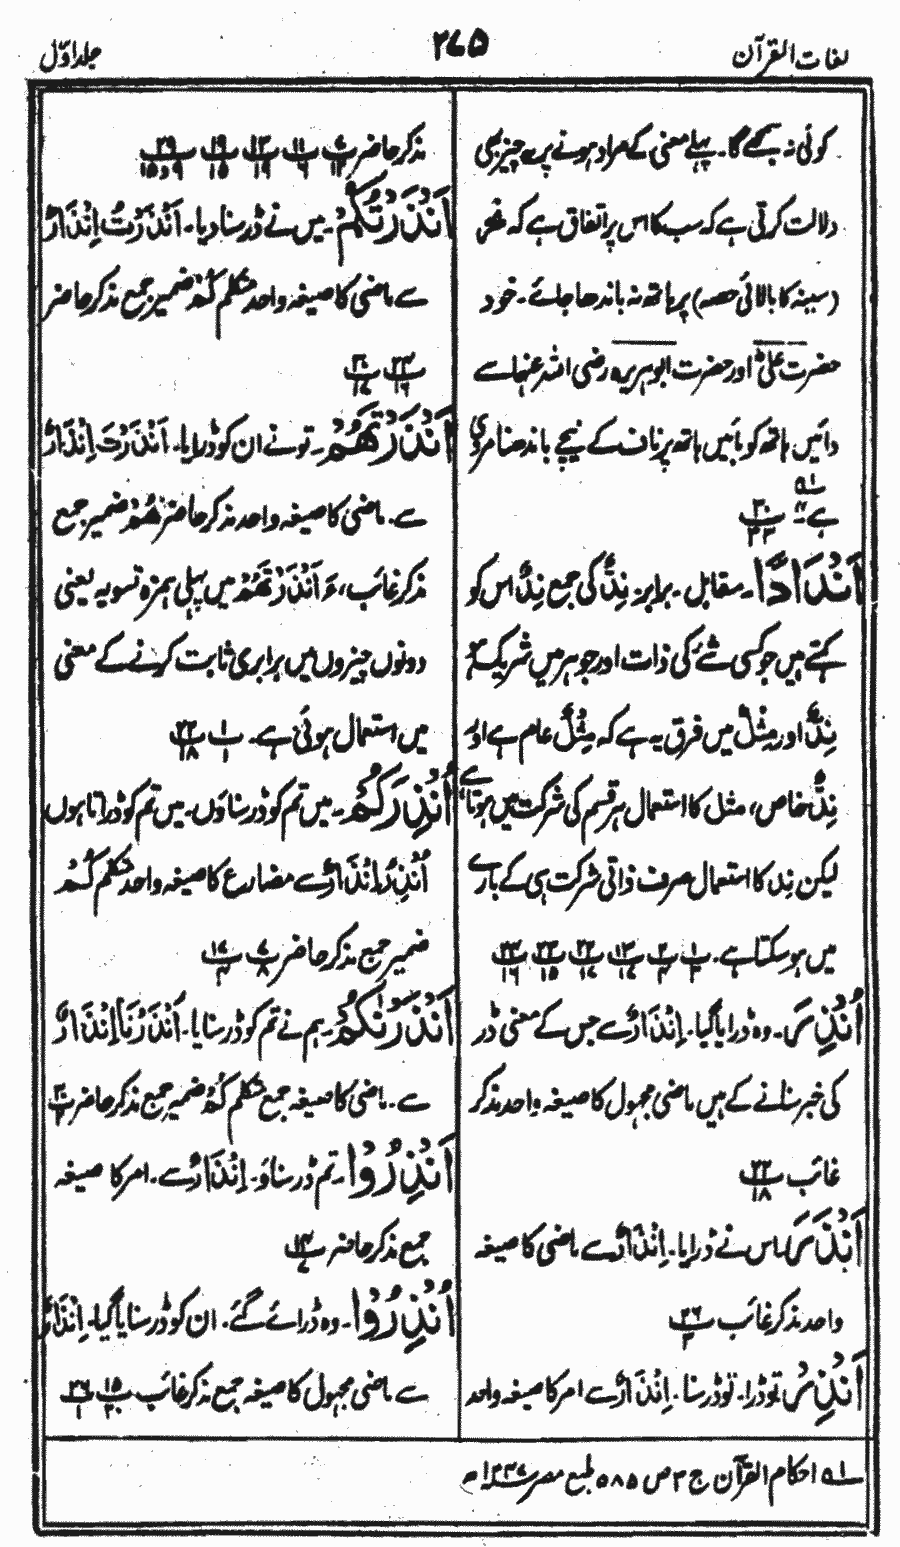 لغات القرآن
۲۷۵
جلد اوّل
کوئی نہ سمجھے گا۔ پہلے معنی کے مراد ہونے پر یہ چیز بھی
دلالت کرتی ہے کہ سب کا اس پر اتفاق ہے کہ نحر
(سینہ کا بالائی حصہ) پر ہاتھ نہ باندھا جائے۔ خود
حضرت علیؓ اور حضرت ابوہریرہ رضی اللہ عنہما سے
دائیں ہاتھ کو بائیں ہاتھ پر ناف کے نیچے باندھنا مروی
ہے۔ ۱؎ ۳۰/۳۳
اَنْدَادًا۔ مقابل۔ برابر۔ نِدٌّ کی جمع نِدٌّ اس کو
کہتے ہیں جو کسی شئے کی ذات اور جوہر میں شریک ہو
نِدٌّ اور مِثْلٌ میں فرق یہ ہے کہ مِثْلٌ عام ہے اور
نِدٌّ خاص، مثل کا استعمال ہر قسم کی شرکت میں ہوتا ہے
لیکن نِد کا استعمال صرف ذاتی شرکت ہی کے بارے
میں ہو سکتا ہے۔ ۱/۳ ۲/۴ ۱۳/۱۷ ۲۲/۱۷ ۲۳/۱۵ ۲۳/۱۶
اُنْذِرَ۔ وہ ڈرایا گیا۔ اِنْذَارٌ سے جس کے معنی ڈر
کی خبر سنانے کے ہیں ماضی مجہول کا صیغہ واحد مذکر
غائب ۲۲/۱۸
اَنْذَرَ اس نے ڈرایا۔ اِنْذَارٌ سے ماضی کا صیغہ
واحد مذکر غائب ۲۶/۳
اَنْذِرْ تو ڈرا۔ تو ڈر سنا۔ اِنْذَارٌ سے امر کا صیغہ واحد
مذکر حاضر ۷/۱۳ ۱۱/۶ ۱۳/۱۹ ۱۹/۱۵ ۲۹/۹ و ۱۵
اَنْذَرْتُكُمْ۔ میں نے ڈر سنا دیا۔ اَنْذَرْتُ اِنْذَارٌ
سے ماضی کا صیغہ واحد متکلم كُمْ ضمیر جمع مذکر حاضر
۲۳/۱۶ ۳۰/۱۷
اَنْذَرْتَهُمْ۔ تو نے ان کو ڈرایا۔ اَنْذَرْتَ اِنْذَارٌ
سے۔ ماضی کا صیغہ واحد مذکر حاضر هُمْ ضمیر جمع
مذکر غائب، ءَ اَنْذَرْتَهُمْ میں پہلی ہمزہ تسویہ یعنی
دونوں چیزوں میں برابری ثابت کرنے کے معنی
میں استعمال ہوئی ہے۔ ۱/۱ ۲۲/۱۸
اُنْذِرَكُمْ۔ میں تم کو ڈر سناؤں۔ میں تم کو ڈراتا ہوں
اُنْذِرُ اِنْذَارٌ سے مضارع کا صیغہ واحد متکلم كُمْ
ضمیر جمع مذکر حاضر ۷/۸ ۱۷/۴
اَنْذَرْنٰكُمْ۔ ہم نے تم کو ڈر سنایا۔ اَنْذَرْنَا اِنْذَارٌ
سے۔ ماضی کا صیغہ جمع متکلم كُمْ ضمیر جمع مذکر حاضر ۳۰/۲
اَنْذِرُوْا۔ تم ڈر سناؤ۔ اِنْذَارٌ سے۔ امر کا صیغہ
جمع مذکر حاضر ۱۴/۷
اُنْذِرُوْا۔ وہ ڈرائے گئے۔ ان کو ڈر سنایا گیا۔ اِنْذَارٌ
سے ماضی مجہول کا صیغہ جمع مذکر غائب ۱۵/۲۰ ۲۶/۱
۱؎ احکام القرآن ج ۳ ص ۵۸۵ طبع مصر ۱۳۴۷ھ